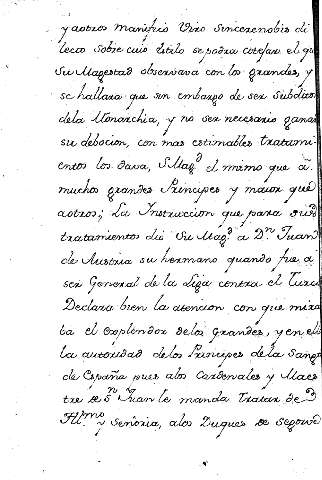 y aotros Manifico Viro Sincerenobis di
lecto sobre cuio estilo se podra cotejar el qe
Su Magestad observava con los grandes, y
se hallara que sin embargo de ser subditos
dela Monarchia, y no ser necesario ganar
su debocion, con mas estimables tratami-
entos los dava, S Magd el mismo que a
muchos grandes Principes y maior que
aotros; La Instruccion que para
tratamientos dio Su Magd a Dn Juan
de Austria su hermano quando fue a
ser General de la Liga contra el Turco
Declara bien la atencion con que mira
ba el explendor delos Grandes, y en ella
la autoridad delos Principes dela Sangre
de España pues alos Cardenales y Maes
tre de Sn Juan le manda tratar de
Illmo y Señoria, alos Duques de Segorve